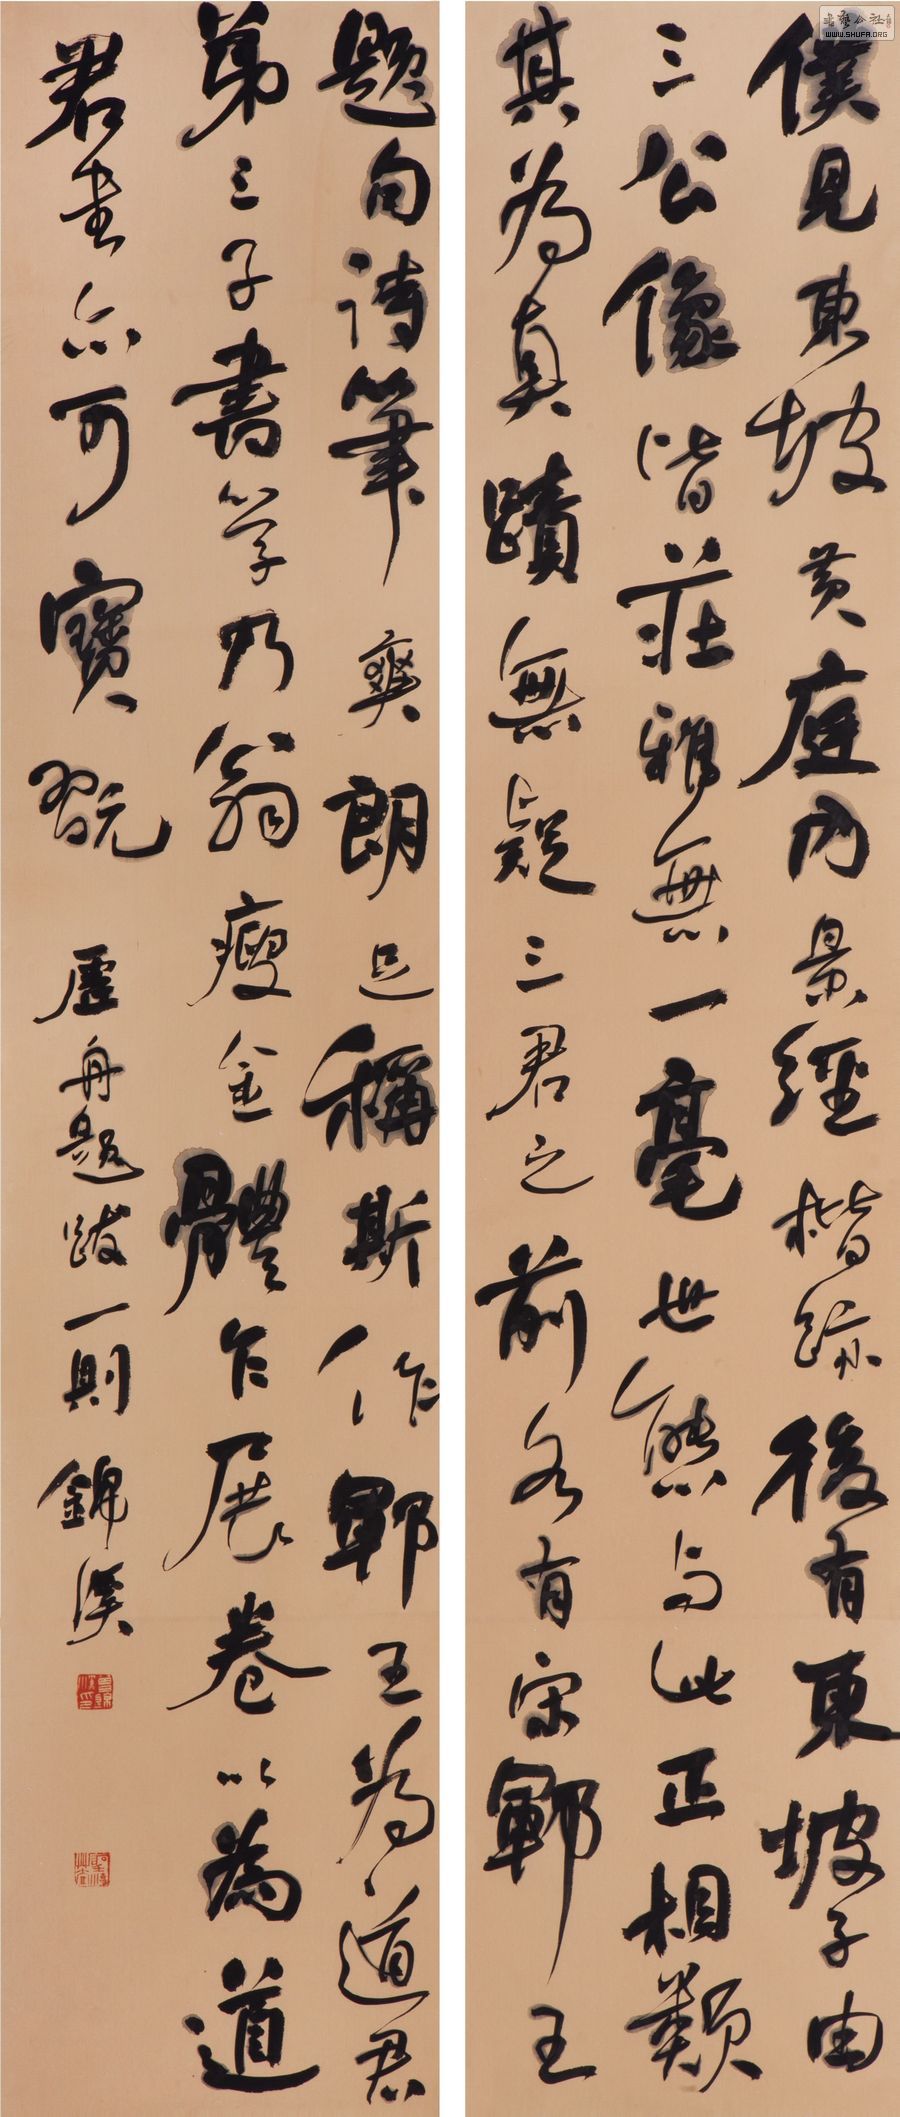 僕見東坡黃庭內景經楷跡後有東坡子由
三公像皆莊雅無一毫世態与此正相類
其為真蹟無疑三君之前各有宋鄆王
題句詩筆爽朗足稱斯作鄆王為道君
弟三子書學乃翁瘦金體乍展卷以為道
君書亦可寶翫
虛舟題跋一則錦溪
書藝公社
WWW.SHUFA.ORG